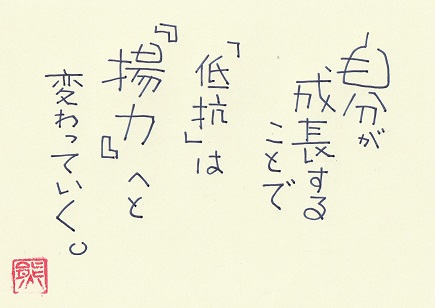 自分が
成長する
ことで
「低抗」は
『揚力』へと
変わっていく。